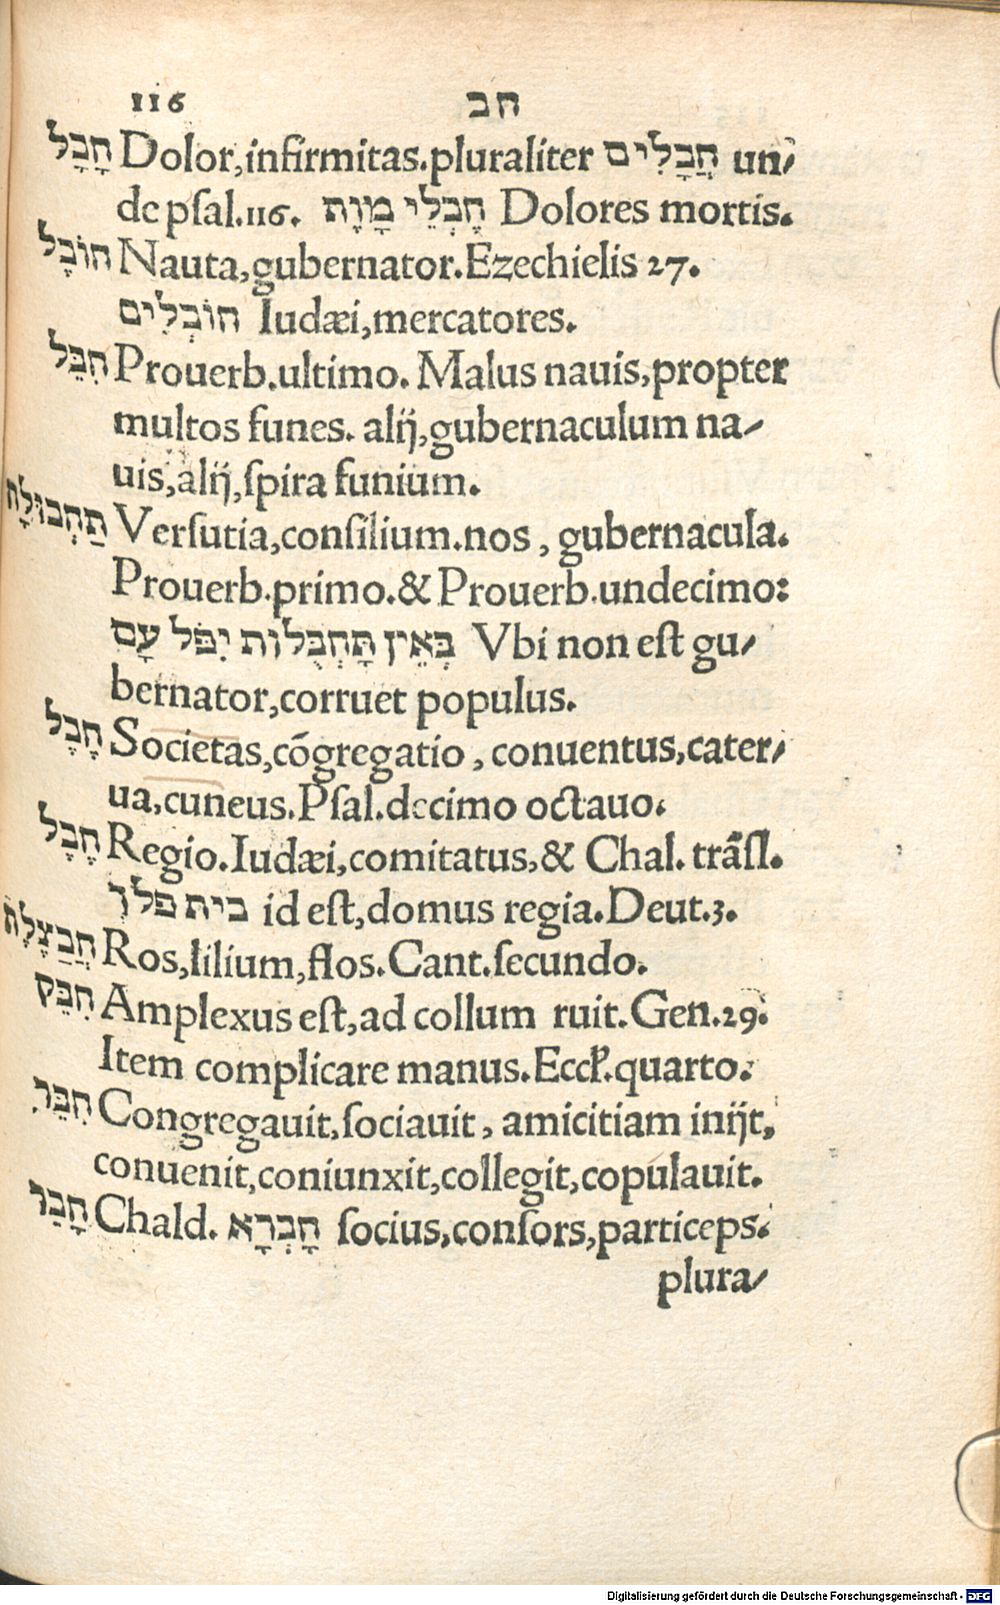 116 חב
חָבָל Dolor,infirmitas.pluraliter חֲבָלִים un-
de psal.116. חֶבְלֵי מָוֶת Dolores mortis.
חוֹבֵל Nauta,gubernator.Ezechielis 27.
חוֹבְלִים Iudæi,mercatores.
חִבֵּל Prouerb.ultimo. Malus nauis,propter
multos funes. alij,gubernaculum na-
uis,alij,spira funium.
תַּחְבּוּלָה Versutia,consilium.nos , gubernacula.
Prouerb.primo.& Prouerb.undecimo:
בְּאֵין תַּחְבֻּלוֹת יִפֹּל עָם Vbi non est gu-
bernator,corruet populus.
חֶבֶל Societas,cõgregatio , conuentus,cater-
ua,cuneus.Psal.decimo octauo.
חֶבֶל Regio.Iudæi,comitatus,& Chal. trãsl.
בית פלך id est,domus regia.Deut.3.
חֲבַצֶלֶת Ros,lilium,flos.Cant.secundo.
חִבֵּק Amplexus est,ad collum ruit.Gen.29.
Item complicare manus.Eccl.quarto.
חִבֵּר Congregauit,sociauit , amicitiam inijt,
conuenit,coniunxit,collegit,copulauit.
חָבַר Chald. חָבְרָא socius,consors,particeps.
plura-
Digitalisierung gefördert durch die Deutsche Forschungsgemeinschaft - DFG